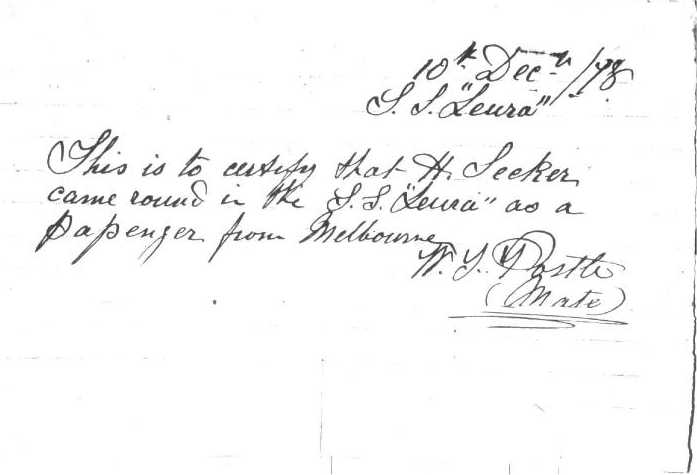 10th Decr /78
S. S. "Leura"
This is to certify that H. Seeker
came round in the S. S. "Leura" as a
passenger from Melbourne
W. Y. Postle
(Mate)